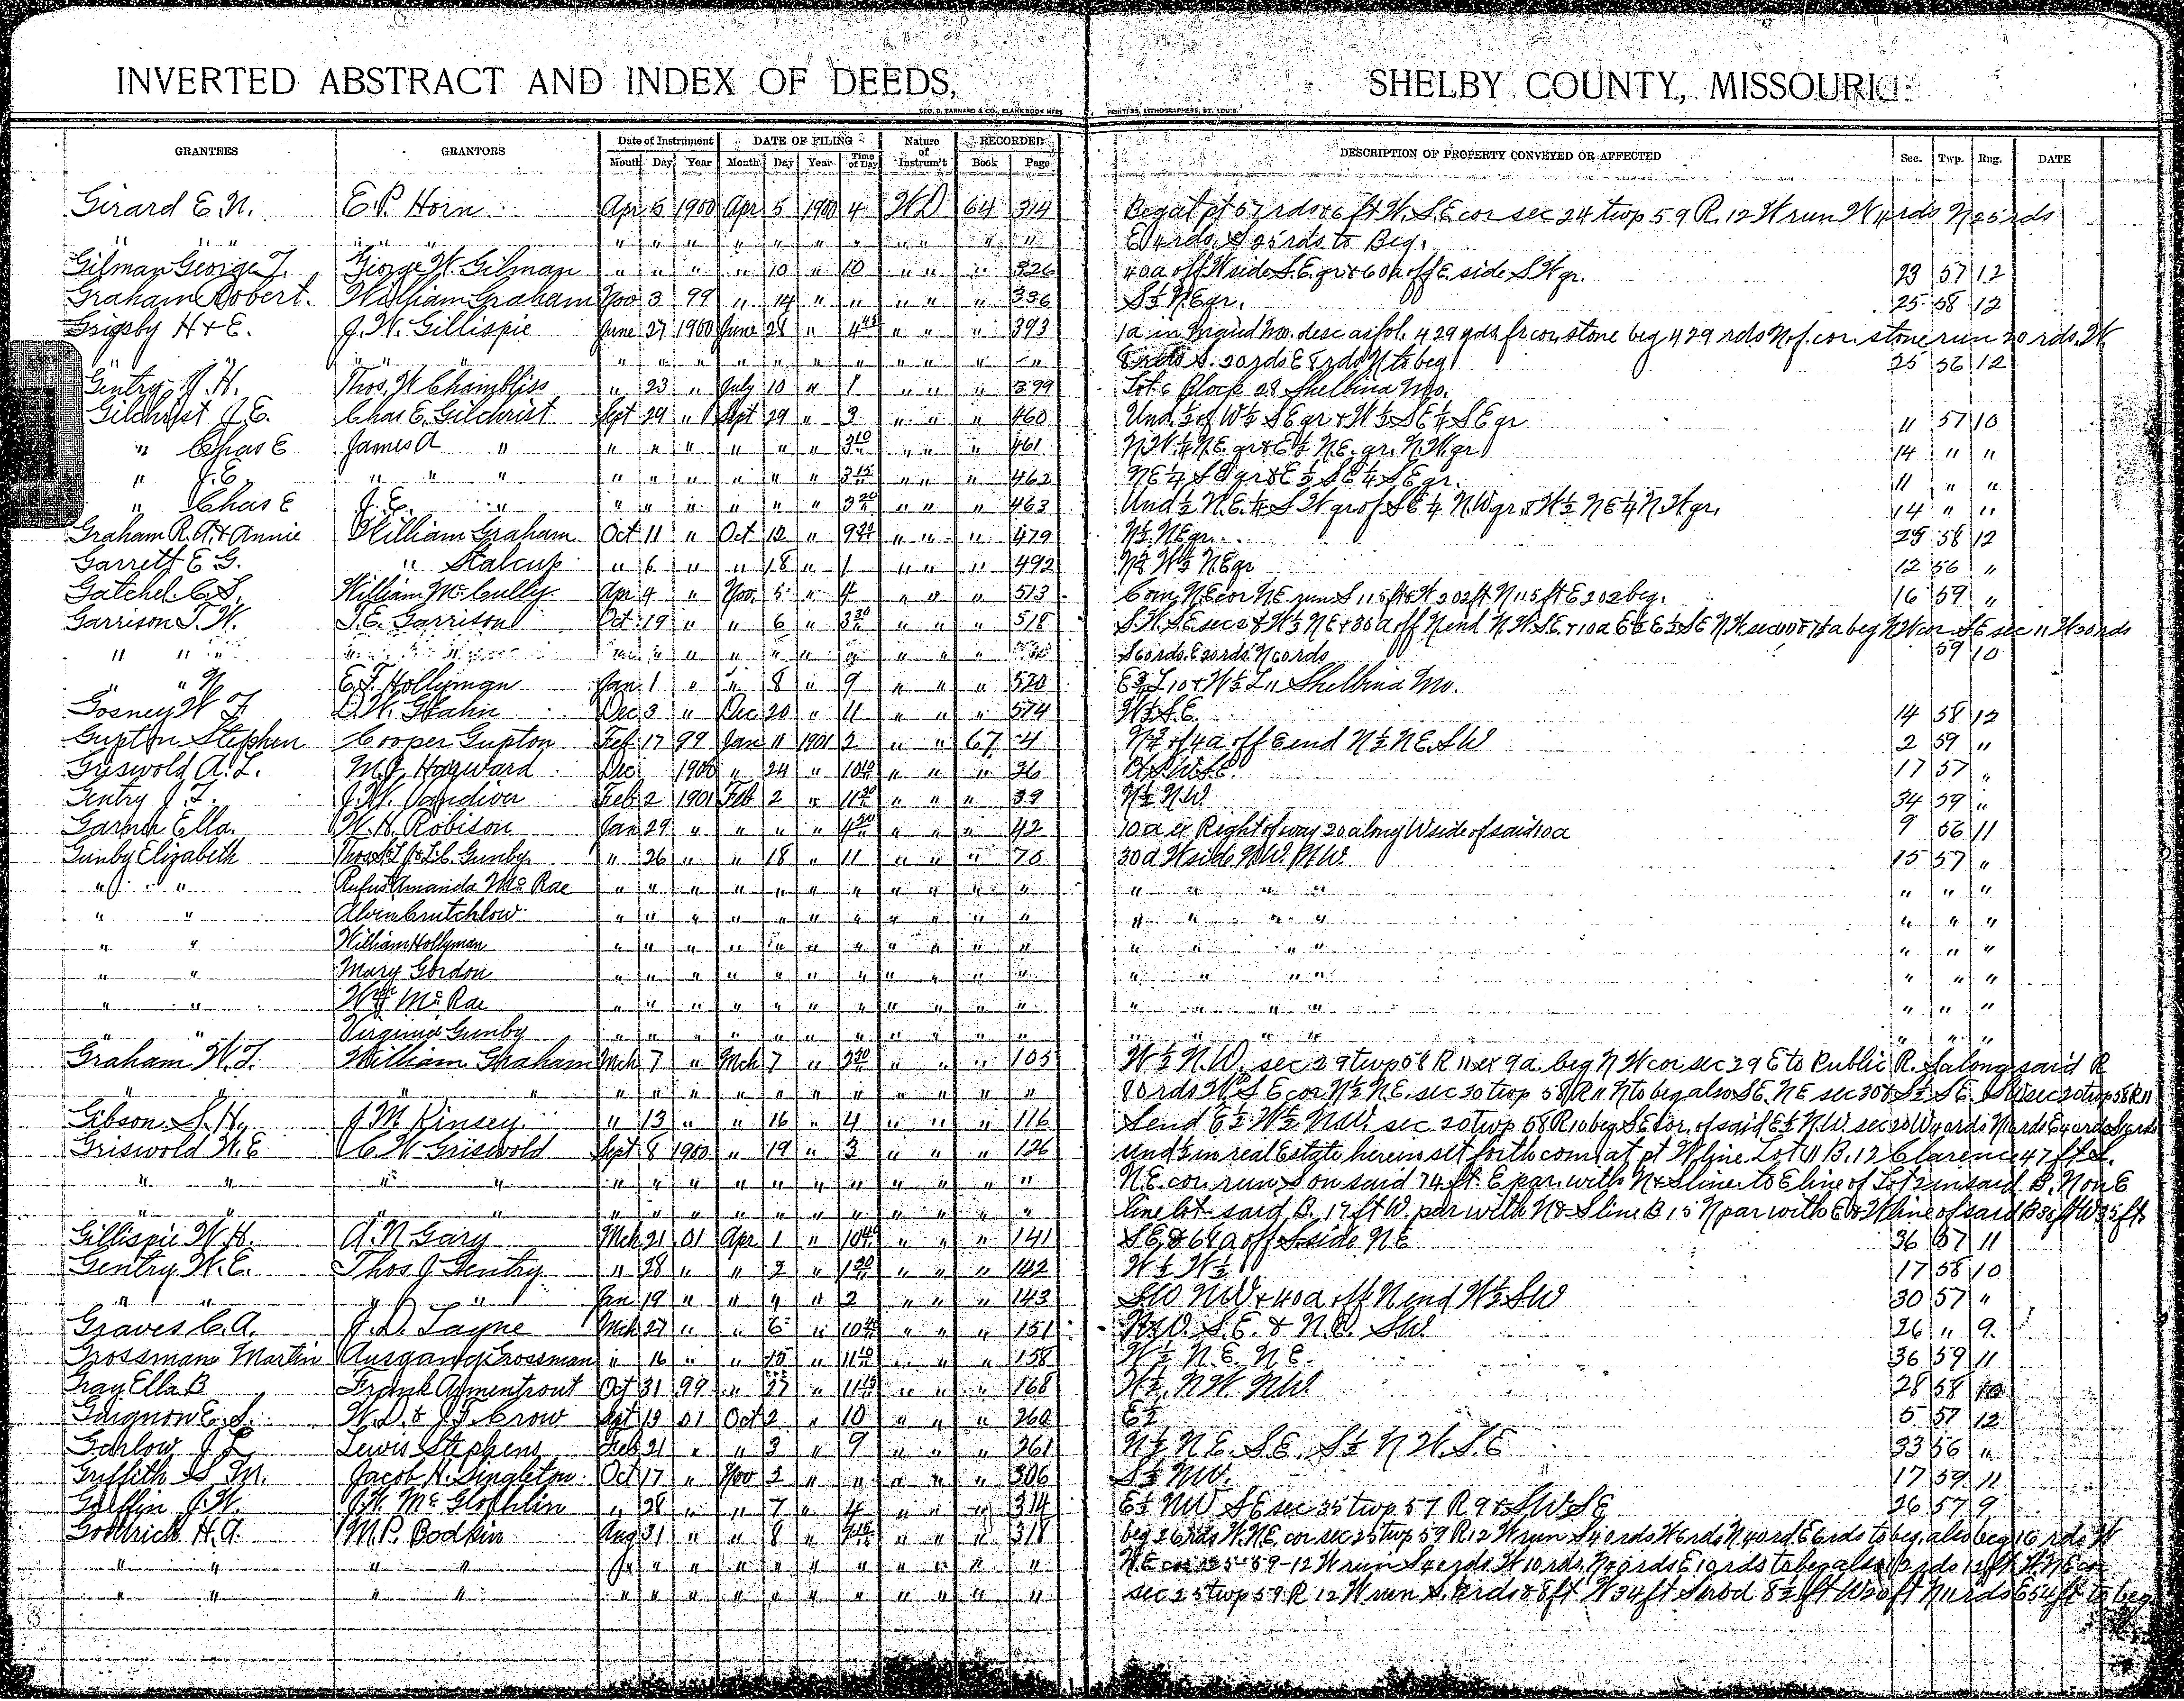 INVERTED ABSTRACT AND INDEX OF DEEDS, SHELBY COUNTY, MISSOURI
GEO. D. BARNARD & CO., BLANK BOOK MFRS PRINTERS, LITHOGRAPHERS, ST. LOUIS
GRANTEES GRANTORS Date of Instrument DATE OF FILING Nature of Instrum't RECORDED DESCRIPTION OF PROPERTY CONVEYED OR AFFECTED Sec. Twp. Rng. DATE
Month Day Year Month Day Year Time of Day Book Page
Girard E. N. E. P. Horn Apr 5 1900 Apr 5 1900 4 WD 64 314 Beg at pt 57 rds & 6 ft W. S.E cor sec 24 twp 59 R. 12 W run W 4 rds N 25 rds
" " " " " " " " " " " " " " " " E 4 rds. S 25 rds to Beg.
Gilman George T. George W. Gilman " " " " 10 " 10 " " " 326 40a off W side S.E. qr & 60a off E. side S W qr. 23 57 12
Graham Robert. William Graham Nov 3 99 " 14 " " " " " 336 S½ N.E qr. 25 58 12
Grigsby H & E. J. W. Gillispie June 27 1900 June 28 " 4 45 " " " 393 1a in desc as fol. 429 yds fr cor. stone beg 429 rds N of cor. stone run 20 rds. W
" " " " " " " " " " " " " " 8 rds S. 20 rds E 8 rds N to beg 25 56 12
Gentry J. H. Thos. W Chambliss " 23 " July 10 " 1 " " " 399 Lot 6 Block 28 Shelbina Mo.
Gilchrist J. E. Chas E. Gilchrist Sept 29 " Sept 29 " 3 " " " 460 Und. ½ of W½ S E qr & W½ S E ¼ S E qr 11 57 10
" Chas E James A " " " " " " " 3 10 " " " 461 N W ¼ N.E. qr & E½ N.E. qr. N.W. qr 14 " "
" J. E. " " " " " " " " " 3 15 " " " 462 N E ¼ S E qr & E ½ S E ¼ S E qr. 11 " "
" Chas E J. E. " " " " " " " 3 20 " " " 463 Und ½ N. E. ¼ S W qr of S E ¼ N.W qr. & W½ N E ¼ N. W qr. 14 " "
Graham R. A. & Annie William Graham Oct 11 " Oct 12 " 9 30 " " " 479 N½ N E qr. 25 58 12
Garrett E. G. " Stalcup " 6 " " 18 " 1 " " " 492 N½ W½ N E qr 12 56 "
Gatchel C. S. William McCully Apr 4 " Nov. 5 " 4 " " " 513 Com. N E cor N.E. run S 115 ft & W 202 ft N 115 ft E 202 beg. 16 59 "
Garrison T. W. T. E. Garrison Oct 19 " " 6 " 3 30 " " " 518 S. W. S E sec 2 & W½ N E & 30 a off N end N. W. S.E & 10a E½ E½ S E N W. sec 11 beg N W cor S E sec 11 W 30 rds
" " " " " " " " " " " " " " S 60 rds. E 30 rds N 60 rds 59 10
" " N E. T. Hollyman Jan 1 " " 8 " 9 " " " 520 L 10 & W½ L 11 Shelbina Mo.
Gosney W F D. W. Hahn Dec 3 " Dec 20 " 11 " " " 574 W½ S. E. 14 58 12
Gupton Stephen Cooper Gupton Feb 17 99 Jan 11 1901 2 " " 67 4 N½ of 4a off E end N½ N E. S W 2 59 "
Griswold A. L. M. J. Hayward Dec 1900 " 24 " 10 " " " 26 S W S E 17 57 "
Gentry J. T. J. W. Vandiver Feb 2 1901 Feb 2 " 11 30 " " " 39 N½ N W 34 59 "
Garner Ella. W. H. Robison Jan 29 " " " " 4 30 " " " 42 10 a ex Right of way 20 along W side of said 10a 9 56 11
Gunby Elizabeth Thos. L. & L. C. Gunby " 26 " " 18 " 11 " " " 75 30a W side N W. N W. 15 57 "
" " Rufus Amanda McRae " " " " " " " " " " " " " " " " "
" " Alvin Crutchlow " " " " " " " " " " " " " " " " "
" " William Hollyman " " " " " " " " " " " " " " " "
" " Mary Gordon " " " " " " " " " " " " " " " "
" " Wm McRae " " " " " " " " " " " " " " " " "
" " Virginia Gunby " " " " " " " " " " " " " " " " "
Graham W. T. William Graham Mch 7 " Mch 7 " 2 30 " " " 105 W½ N.W. sec 29 twp 58 R 11 ex 9a. beg N W cor sec 29 E to Public R. S along said R
" " " " " " " " " " " " " " rds W S E cor N½ N E. sec 30 twp 58 R 11 N to beg also S E. N E sec 30 & S½ S E. sec 20 twp 58 R 11
Gibson S. H. J. M Kinsey " 13 " " 16 " 4 " " " 116 S end E½ W½ N W sec 20 twp 58 R 10 beg. S E cor. of said E½ N.W. sec 20 W 4 rds N rds E 4 rds S rds
Griswold W. E C W Griswold Sept 8 1900 " 19 " 3 " " " 126 und ½ in real Estate herein set forth com. at pt W line Lot 11 B. 12 Clarence 47 ft S.
" " " " " " " " " " " " " " N.E. cor run S on said 74 ft. E par. with N & S line to E line of Lot 2 in said B. N on E
" " " " " " " " " " " " line lot said B. 17 ft W. par with N & S line B 15 N par with E & W line of said B 36 ft W 35 ft
Gillispie W. H. A. N. Gary Mch 21 01 Apr 1 " 10 " " " 141 S E & 68a off S side N E 36 57 11
Gentry W. E. Thos J. Gentry " 28 " " 2 " 1 20 " " " 142 W½ W½ 17 58 10
" " " " Jan 19 " " 4 " 2 " " " 143 S W N W & 40 a off N end W½ S W 30 57 "
Graves C. A. J. D. Tayne Mch 27 " " 6 " 10 " " " 151 N W. S. E. & N. E. S W. 26 " 9.
Grossman Martin Ausgang Grossman " 16 " " 15 " 11 " " " 158 W½ N. E. N. E. 36 59 11
Gray Ella B Frank Armentrout Oct 31 99 " 27 " 11 " " " 168 W½ N W N W 28 58 10
Gaignon E. S. W. D. & J. T. Crow Sept 13 01 Oct 2 " 10 " " " 260 E½ 5 57 12
Garlow J L Lewis Stephens Feb 21 " " 3 " 9 " " " 261 N½ N E. S E. S½ N W. S E 33 56 "
Griffith S M. Jacob H. Singleton Oct 17 " Nov 2 " " " " " 306 S½ N W. 17 59 11
Griffin J. W. J. W. McGlothlin " 28 " " 7 " 4 " " " 314 E½ N W S E sec 35 twp 57 R 9 & S W S E 26 57 9
Goodrich H. A. M. P. Bodkin Aug 31 " " 8 " " " " 318 beg 26 rds W. N E. cor sec 25 twp 59 R. 12 W run S 40 rds W 6 rds N 40 rd E 6 rds to beg. also beg 16 rds W
" " " " " " " " " " " " " N. E cor 25-59-12 W run S 40 rds. W 10 rds. N 40 rds E 10 rds to beg also 12 rds 12 ft W. N E cor
" " " " " " " " " " " " " " sec 25 twp 59 R 12 W run S. rds 8 ft W 34 ft S rod 8½ ft W 20 ft N 11 rds E 54 ft to beg